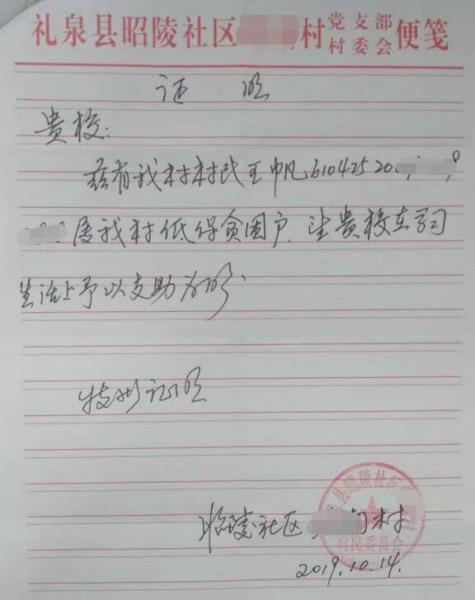 礼泉县昭陵社区 村党支部村委会便笺
证 明
贵校:
兹有我村村民王帆61042520
属我村低保贫困户,望贵校在学习
生活上予以支助为盼、
特此证明
昭陵社区 村
县昭陵社区
村民委员会
2019.10.14.